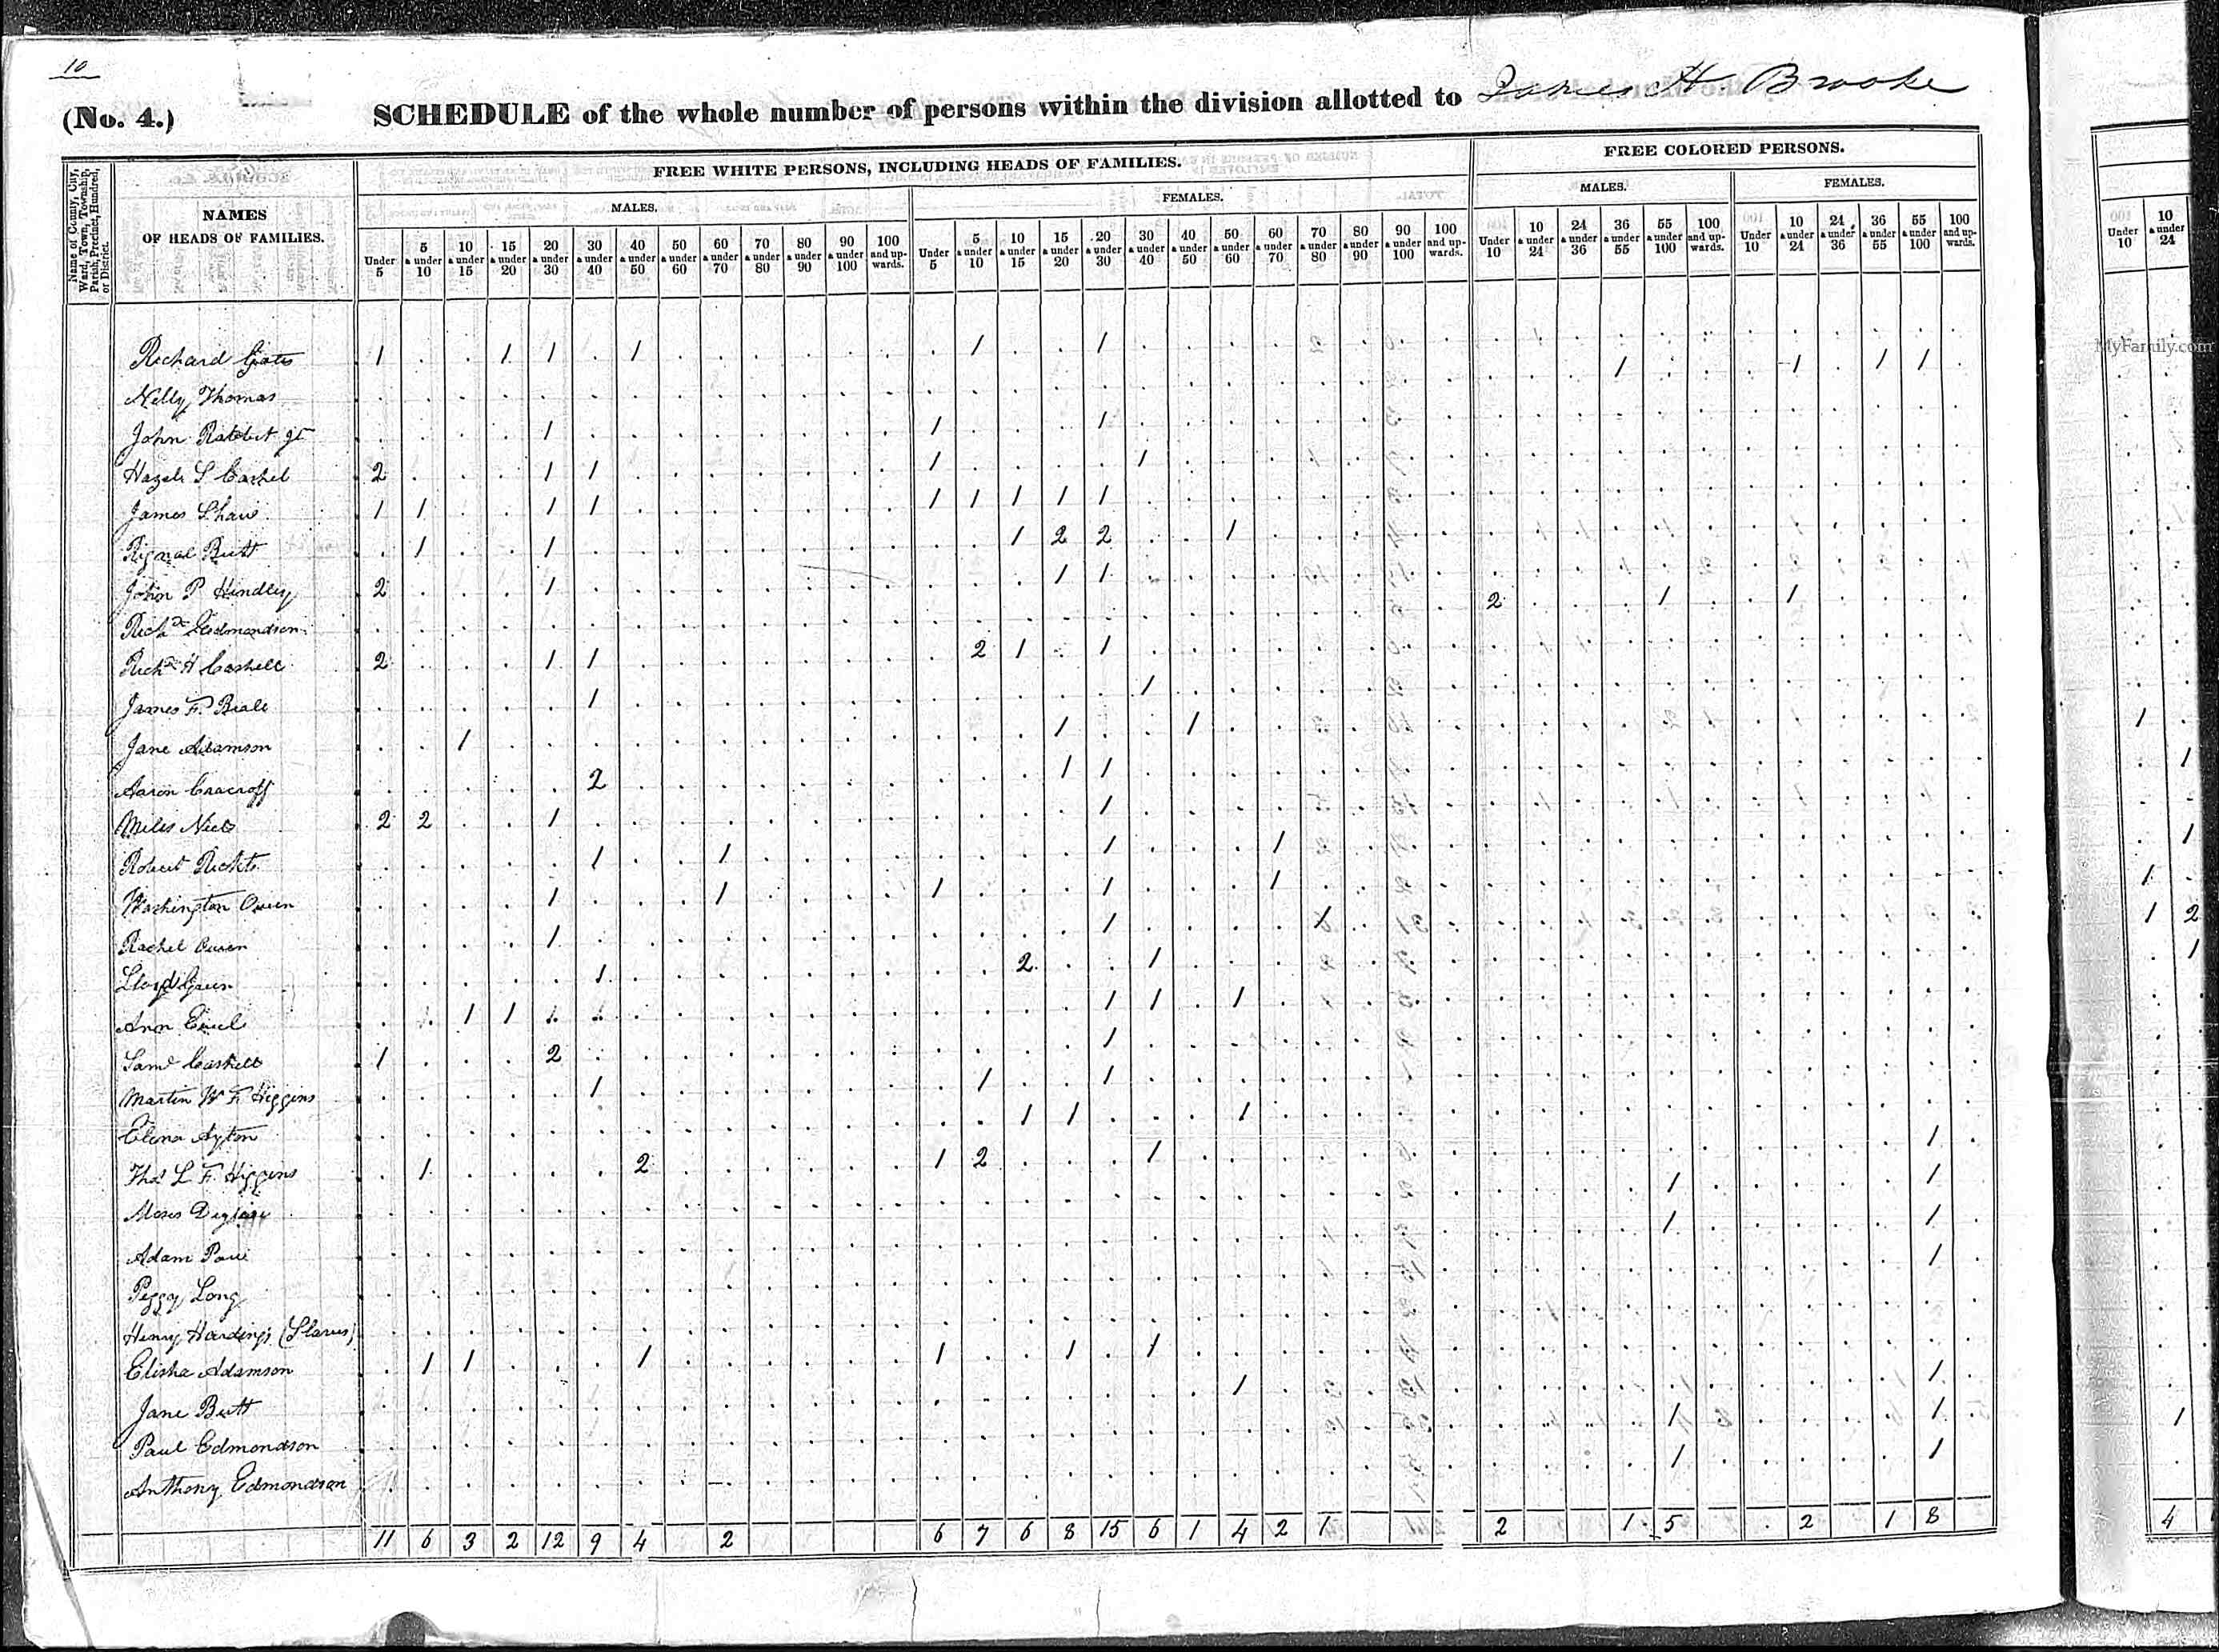 10
(No. 4.) SCHEDULE of the whole number of persons within the division allotted to James H Brooke
FREE WHITE PERSONS, INCLUDING HEADS OF FAMILIES. FREE COLORED PERSONS.
MALES. FEMALES. MALES. FEMALES.
Name of County, City, Ward, Town, Township, Parish, Precinct, Hundred, or District.
NAMES
OF HEADS OF FAMILIES.
Under 5 5 & under 10 10 & under 15 15 & under 20 20 & under 30 30 & under 40 40 & under 50 50 & under 60 60 & under 70 70 & under 80 80 & under 90 90 & under 100 100 and upwards. Under 5 5 & under 10 10 & under 15 15 & under 20 20 & under 30 30 & under 40 40 & under 50 50 & under 60 60 & under 70 70 & under 80 80 & under 90 90 & under 100 100 and upwards. Under 10 10 & under 24 24 & under 36 36 & under 55 55 & under 100 100 and upwards. Under 10 10 & under 24 24 & under 36 36 & under 55 55 & under 100 100 and upwards. Under 10 10 & under 24
MyFamily.com
Richard 1 1 1 1 1 1
Nelly Thomas 1 1 1 1
John jr 1 1 1
2 1 1 1 1
James Shaw 1 1 1 1 1 1 1 1 1
Butt 1 1 1 2 2 1
John P Hindley 2 1 1 1
Richd Edmondson 2 1 1
Richd H Cashell 2 1 1 2 1 1
James F. Beall 1 1
Jane Adamson 1 1 1
Aaron 2 1 1
Miles 2 2 1 1
Robert Rickts 1 1 1 1
Washington Owen 1 1 1 1 1
Rachel Owen 1 1 1
Lloyd Green 1 2 1
Ann 1 1 1 1 1 1
Saml Cashell 1 2 1
Martin W F Higgins 1 1 1
Elena Ayton 1 1 1
Thos L F. Higgins 1 2 1 2 1 1
Moses 1 1
Adam 1 1
Peggy Long 1
Henry Harding's (Slaves)
Elisha Adamson 1 1 1 1 1 1
Jane Butt 1 1
Paul Edmondson 1 1
Anthony Edmondson 1 1
11 6 3 2 12 9 4 2 6 7 6 8 15 6 1 4 2 1 2 1 5 2 1 8 4